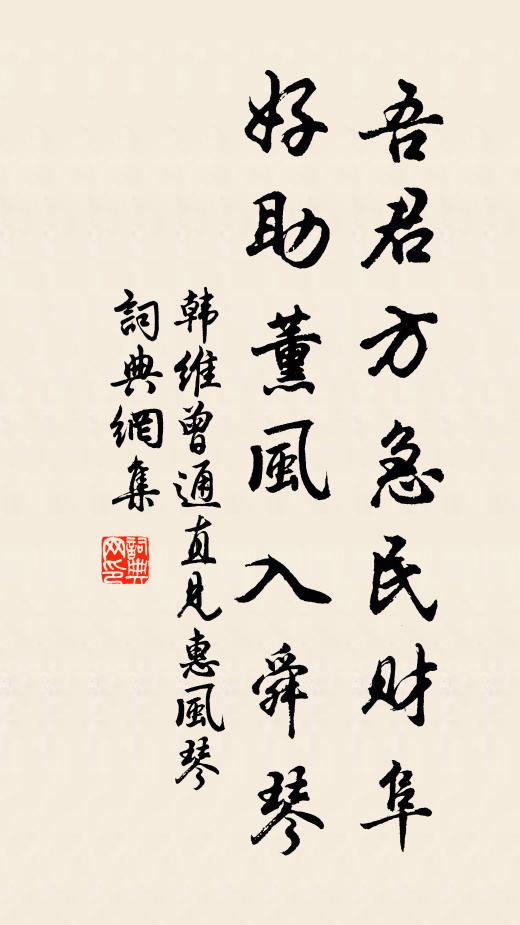 吾君方急民財阜
好助薰風入舜琴
韩維曾通直見惠風琴
詞典網集
詞典网印